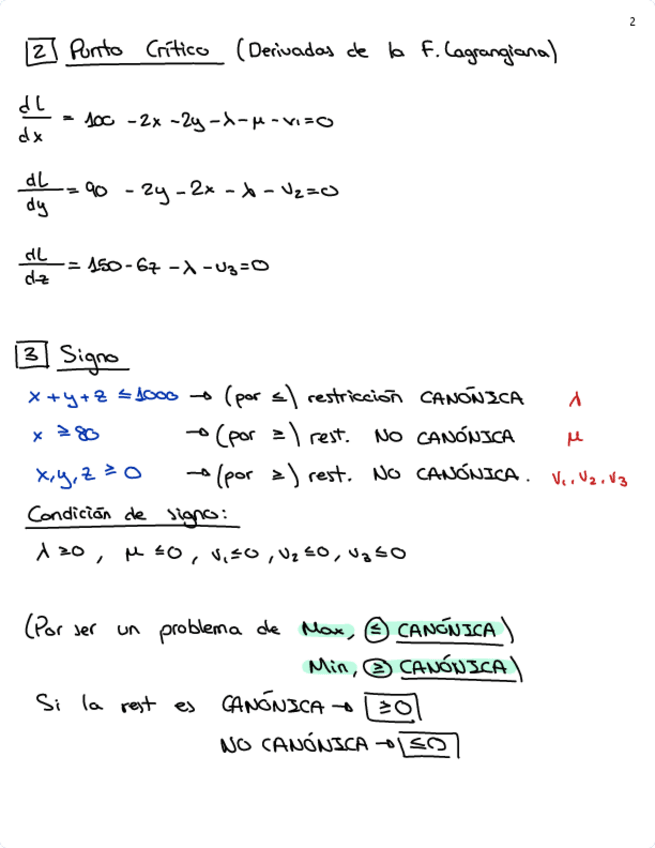 2
2 Punto Crítico (Derivadas de la F. Lagrangiana)
dL/dx = 100 - 2x - 2y - λ - μ - v₁ = 0
dL/dy = 90 - 2y - 2x - λ - v₂ = 0
dL/dz = 150 - 6z - λ - v₃ = 0
3 Signo
x + y + z ≤ 1000 → (por ≤) restricción CANÓNICA λ
x ≥ 80 → (por ≥) rest. NO CANÓNICA μ
x, y, z ≥ 0 → (por ≥) rest. NO CANÓNICA. v₁, v₂, v₃
Condición de signo:
λ ≥ 0, μ ≤ 0, v₁ ≤ 0, v₂ ≤ 0, v₃ ≤ 0
(Por ser un problema de Max, ≤ CANÓNICA)
Min, ≥ CANÓNICA)
Si la rest es CANÓNICA → ≥ 0
NO CANÓNICA → ≤ 0